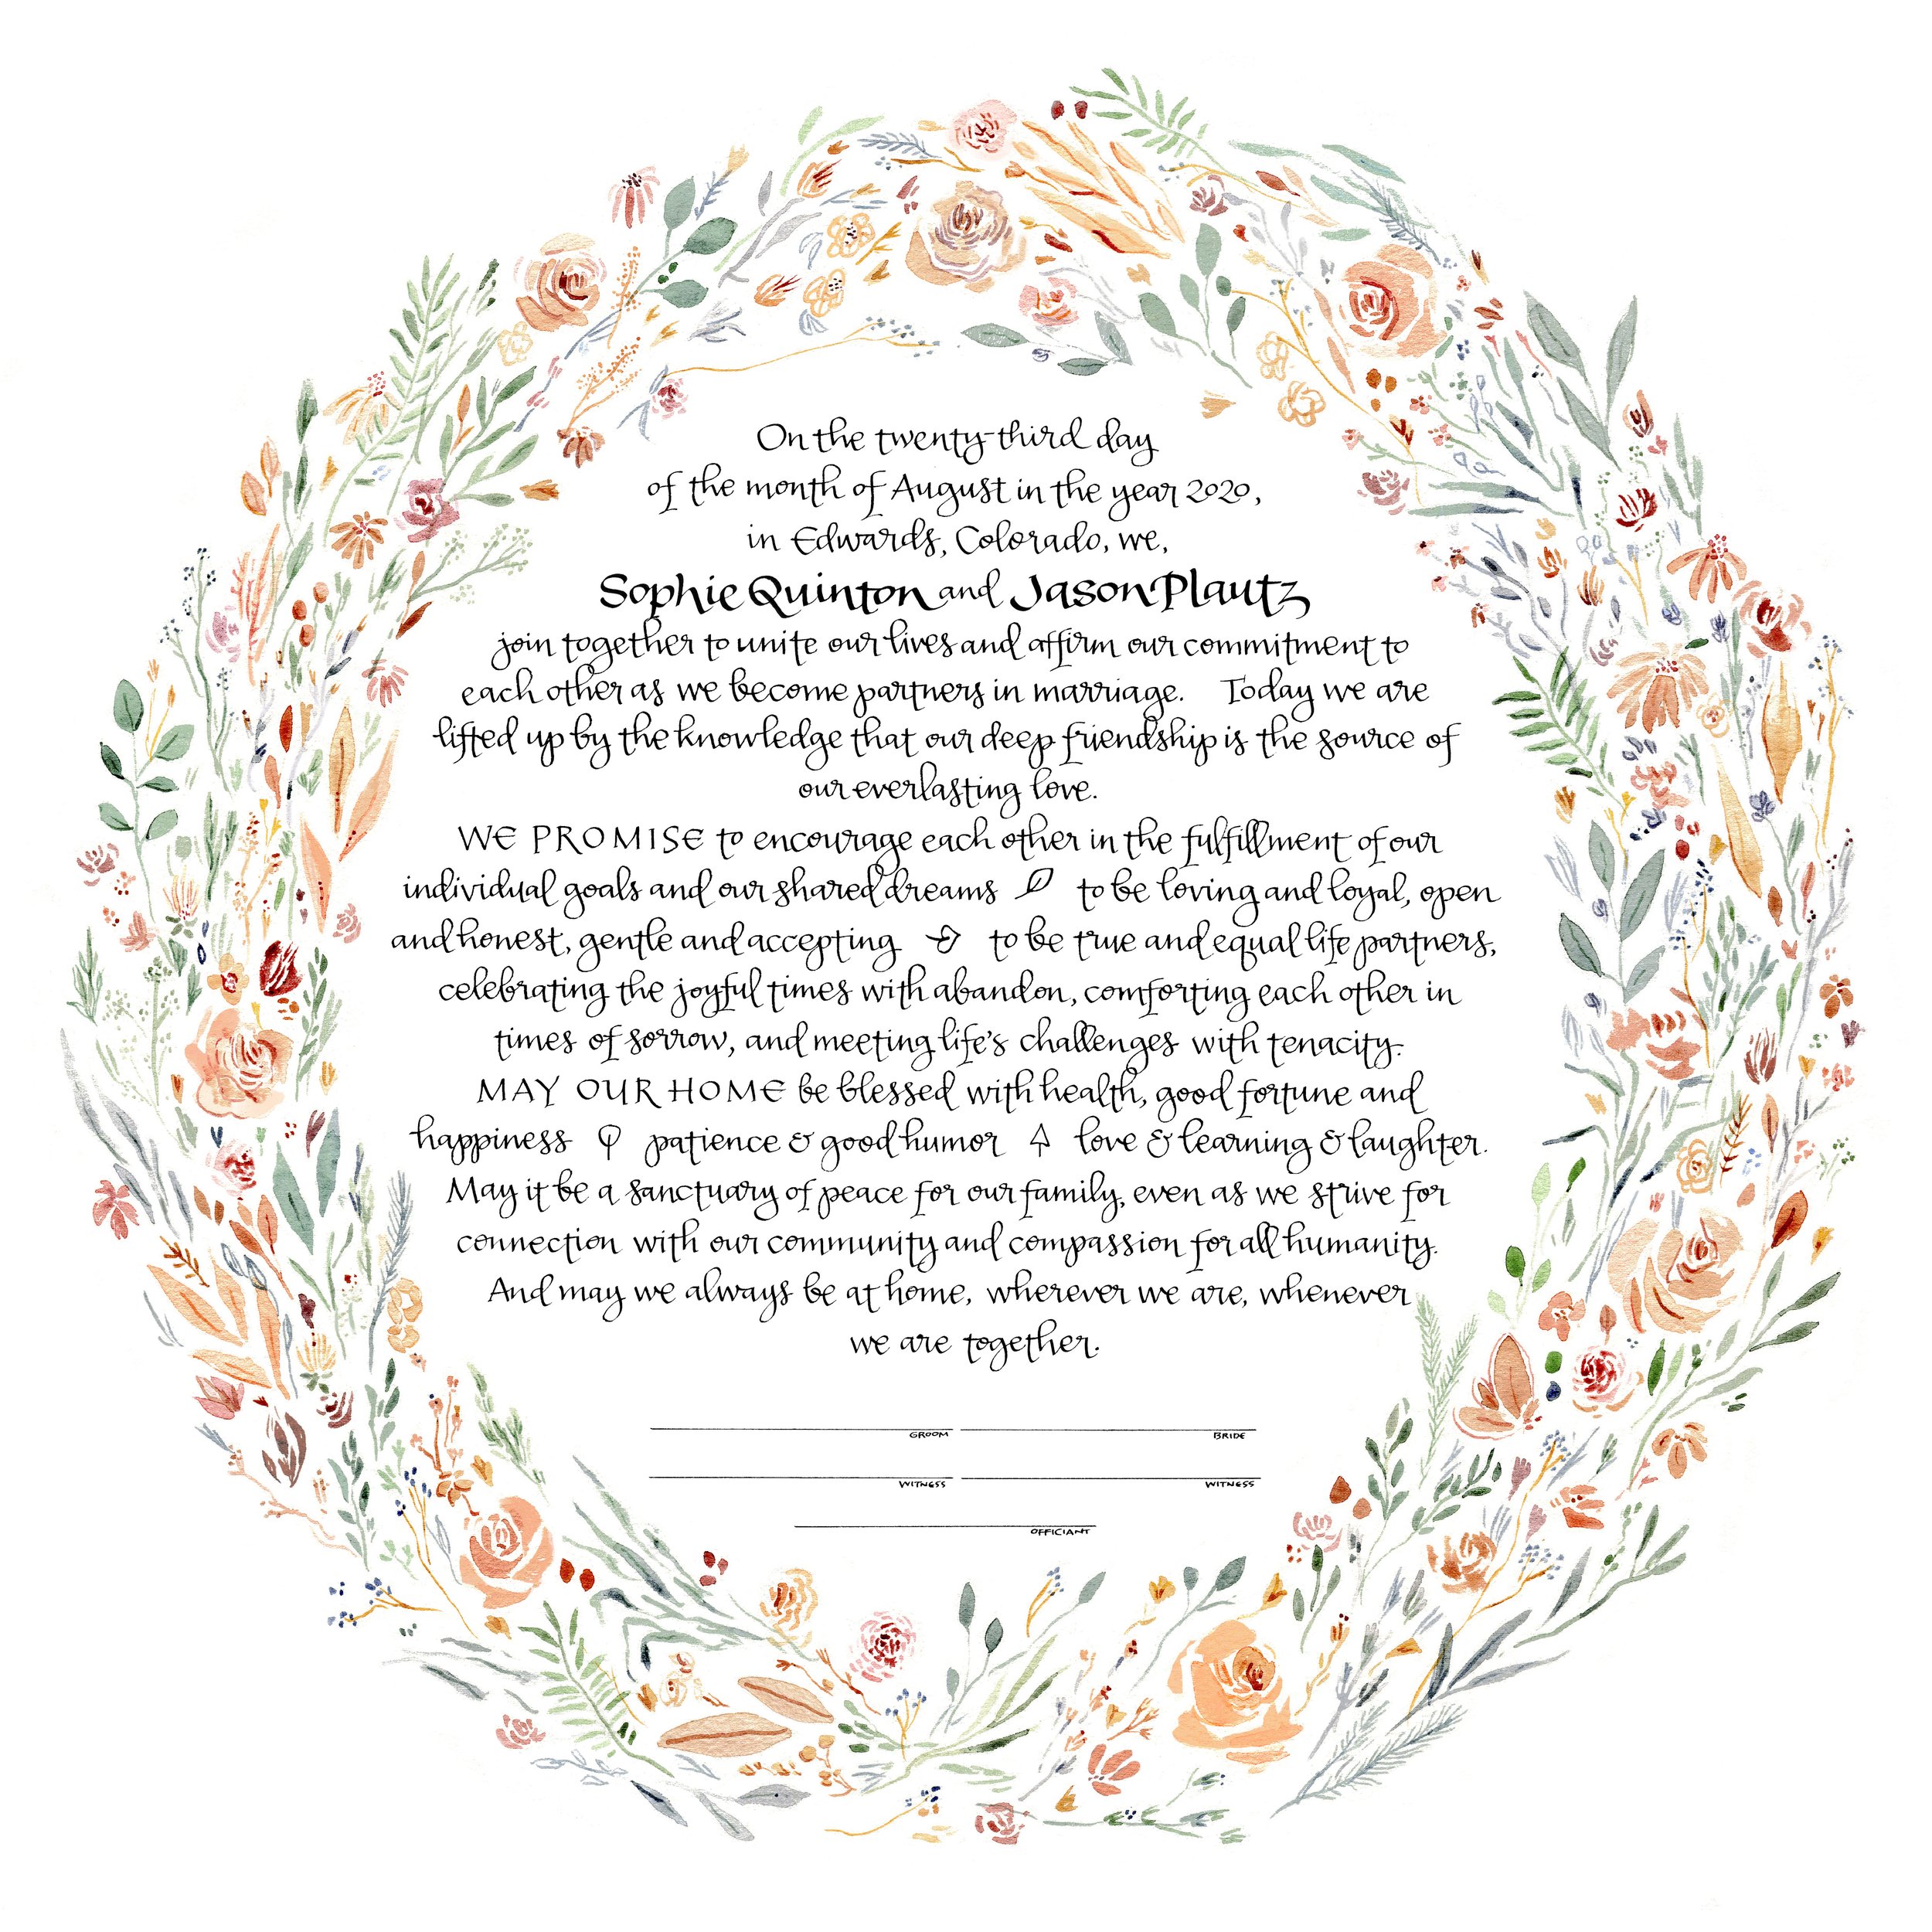 On the twenty-third day
of the month of August in the year 2020,
in Edwards, Colorado, we,
Sophie Quinton and Jason Plautz
join together to unite our lives and affirm our commitment to
each other as we become partners in marriage. Today we are
lifted up by the knowledge that our deep friendship is the source of
our everlasting love.
WE PROMISE to encourage each other in the fulfillment of our
individual goals and our shared dreams to be loving and loyal, open
and honest, gentle and accepting to be true and equal life partners,
celebrating the joyful times with abandon, comforting each other in
times of sorrow, and meeting life's challenges with tenacity.
MAY OUR HOME be blessed with health, good fortune and
happiness patience & good humor love & learning & laughter.
May it be a sanctuary of peace for our family, even as we strive for
connection with our community and compassion for all humanity.
And may we always be at home, wherever we are, whenever
we are together.
GROOM BRIDE
WITNESS WITNESS
OFFICIANT